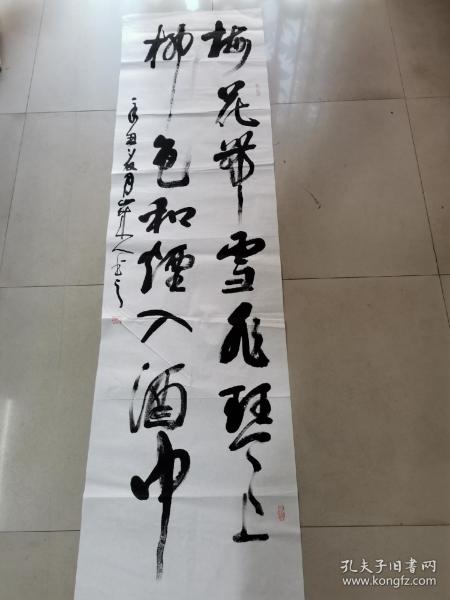 梅花带雪飞琴上
柳色和烟入酒中
辛丑
孔夫子旧书网
www.kongfz.com